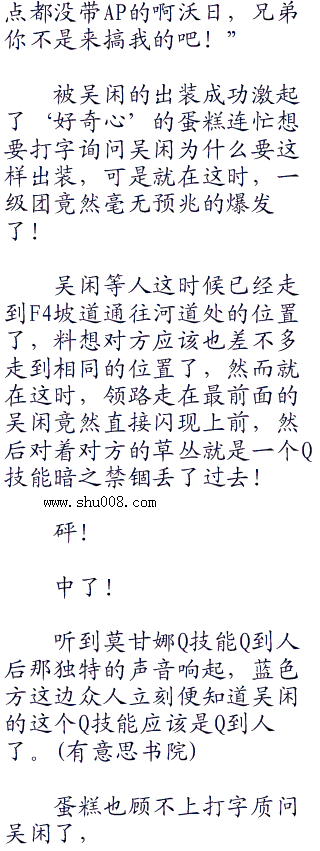 点都没带AP的啊沃日，兄弟
你不是来搞我的吧！”
被吴闲的出装成功激起
了‘好奇心’的蛋糕连忙想
要打字询问吴闲为什么要这
样出装，可是就在这时，一
级团竟然毫无预兆的爆发
了！
吴闲等人这时候已经走
到F4坡道通往河道处的位置
了，料想对方应该也差不多
走到相同的位置了，然而就
在这时，领路走在最前面的
吴闲竟然直接闪现上前，然
后对着对方的草丛就是一个Q
技能暗之禁锢丢了过去！
www.shu008.com
砰！
中了！
听到莫甘娜Q技能Q到人
后那独特的声音响起，蓝色
方这边众人立刻便知道吴闲
的这个Q技能应该是Q到人
了。(有意思书院)
蛋糕也顾不上打字质问
吴闲了，